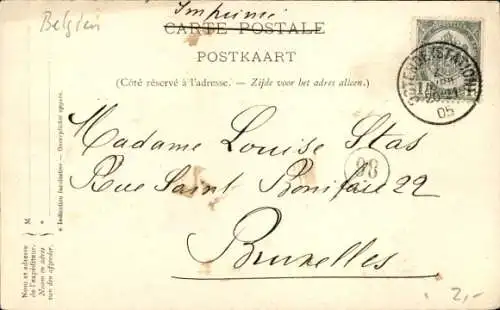 Imprimé
Belgien
CARTE POSTALE
POSTKAART
(Côté réservé à l'adresse. — Zijde voor het adres alleen.)
1
OSTENDE (STATION)
05
Madame Louise Stas
98
Rue Saint Boniface 22
Bruxelles
* Indication facultative — Onverplichte opgave.
M
*
Nom et adresse
de l'expéditeur.
Naam en adres
van den afzender.
2,-